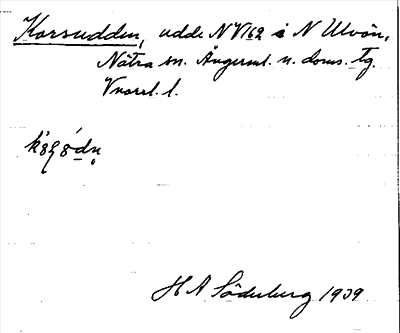 Korsudden, udde NV162 å N Ulvön,
Nätra sn. Ångerml. n. doms. tg.
Vnorrl. l.
H A Söderberg 1939